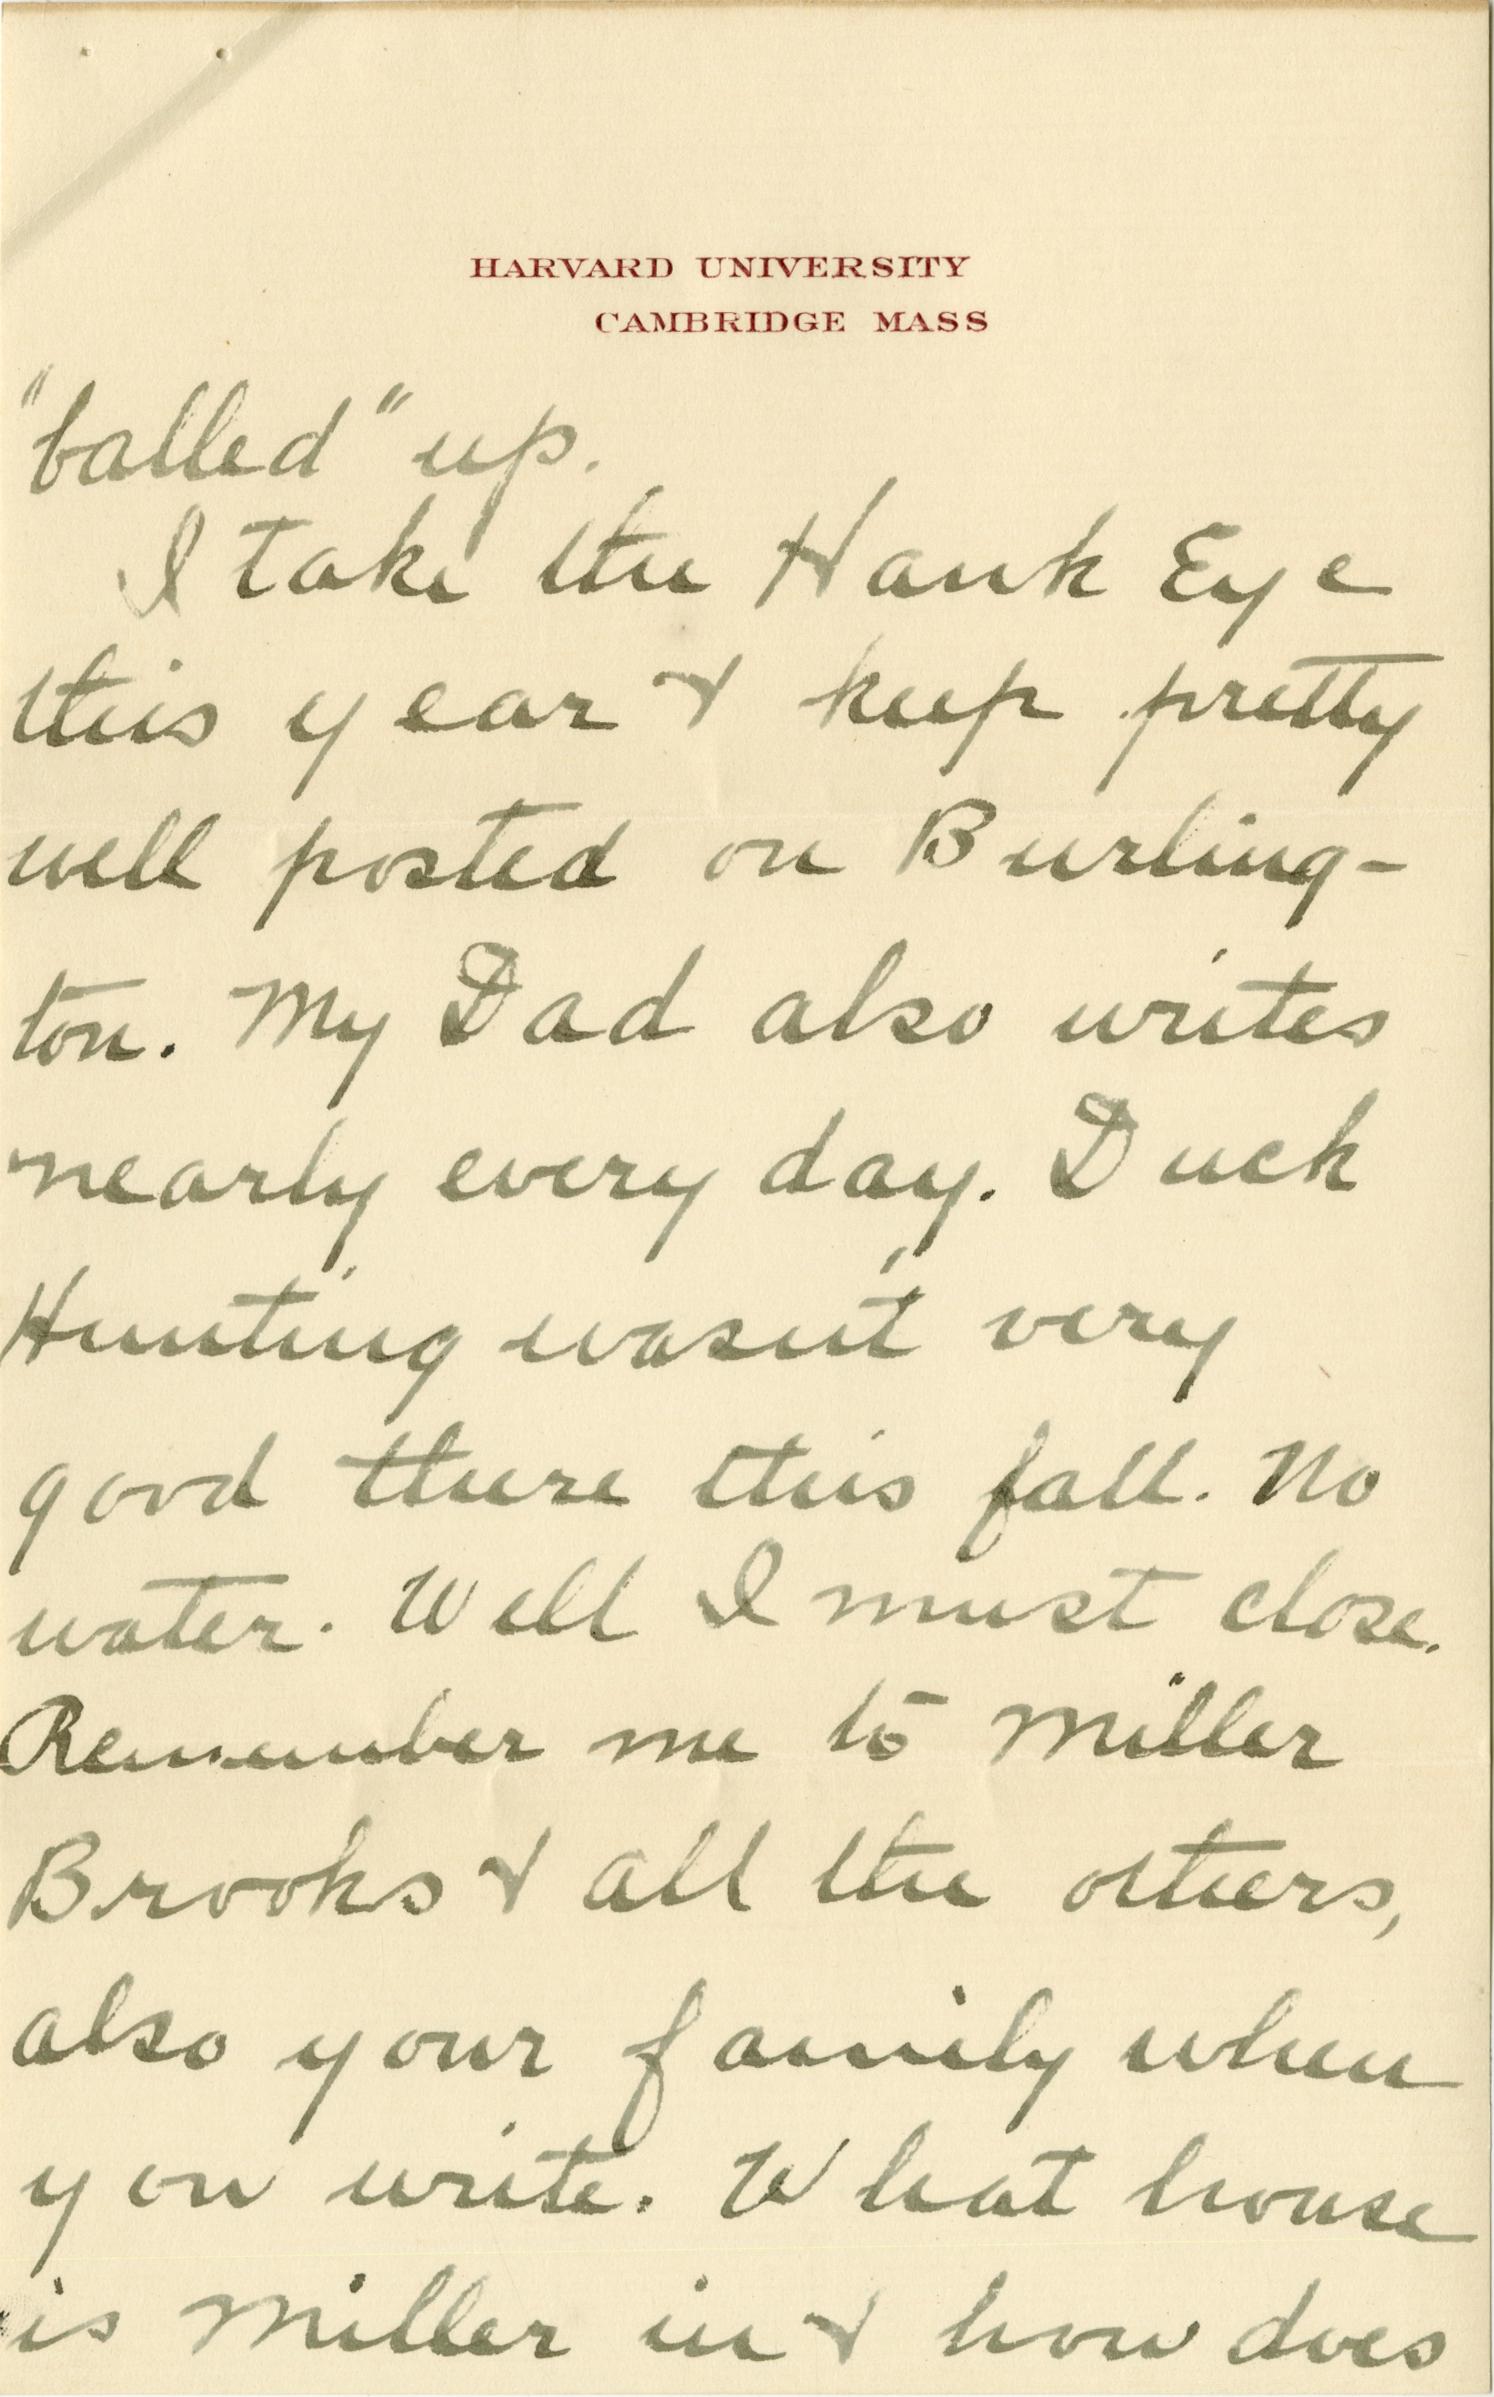 HARVARD UNIVERSITY
CAMBRIDGE MASS
"balled" up.
I take the Hawk Eye
this year & keep pretty
well posted on Burling-
ton. My Dad also writes
nearly every day. Duck
Hunting wasn't very
good there this fall. No
water. Well I must close.
Remember me to Miller
Brooks & all the others,
also your family when
you write. What house
is Miller in & how does